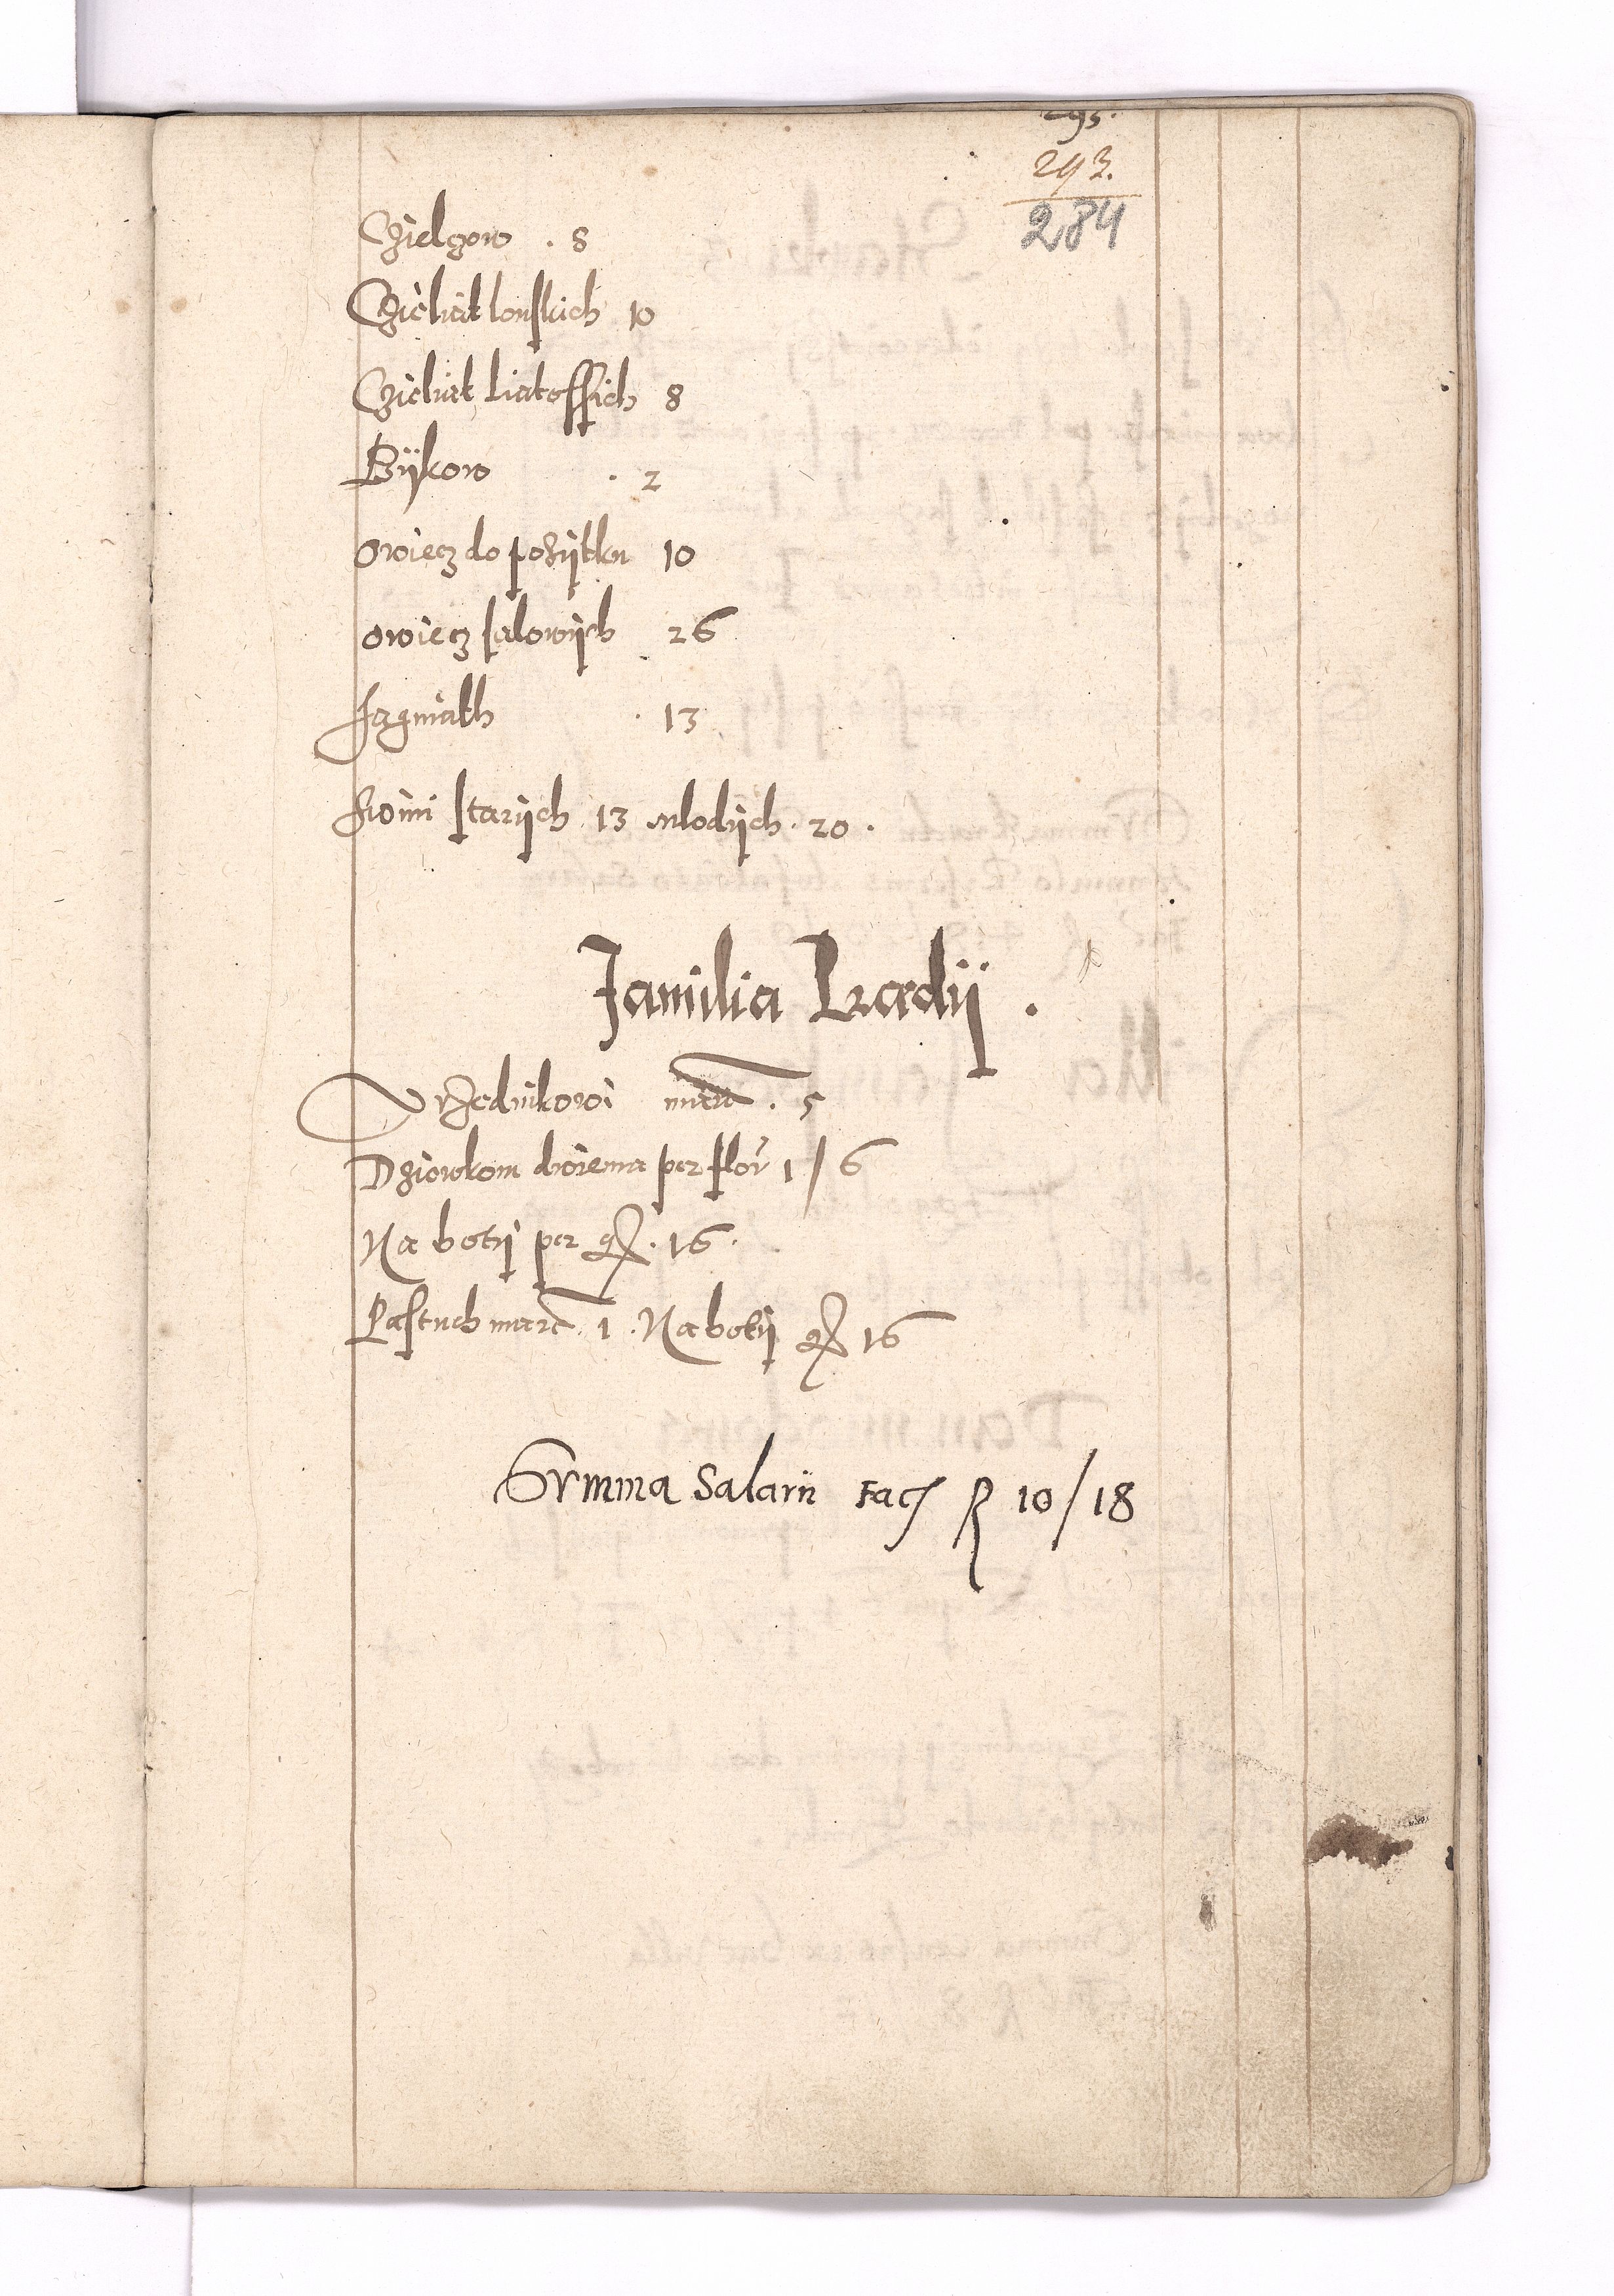 295.
293.
284
Czielczow . 8
Czieliat lonskich 10
Czieliat Liatossich 8
Bÿkow . 2
owiecz do pozÿtku 10
owiecz jalowÿch 26
Jagniath . 13
Swini starÿch 13 mlodÿch . 20 .
Familia Prædÿ .
Vrzednikowi marc . 5
Dziewkom dwiema per flor 1 / 6
Na botÿ per gr . 16 .
Pastuch marc . 1 . Na botÿ gr 16
Svmma Salarii Fac R 10/18